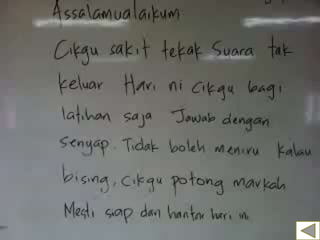 Assalamualaikum
Cikgu sakit tekak Suara tak
keluar Hari ni cikgu bagi
latihan saja Jawab dengan
senyap. Tidak boleh meniru Kalau
bising, cikgu potong markah
Mesti siap dan hantar hari ini